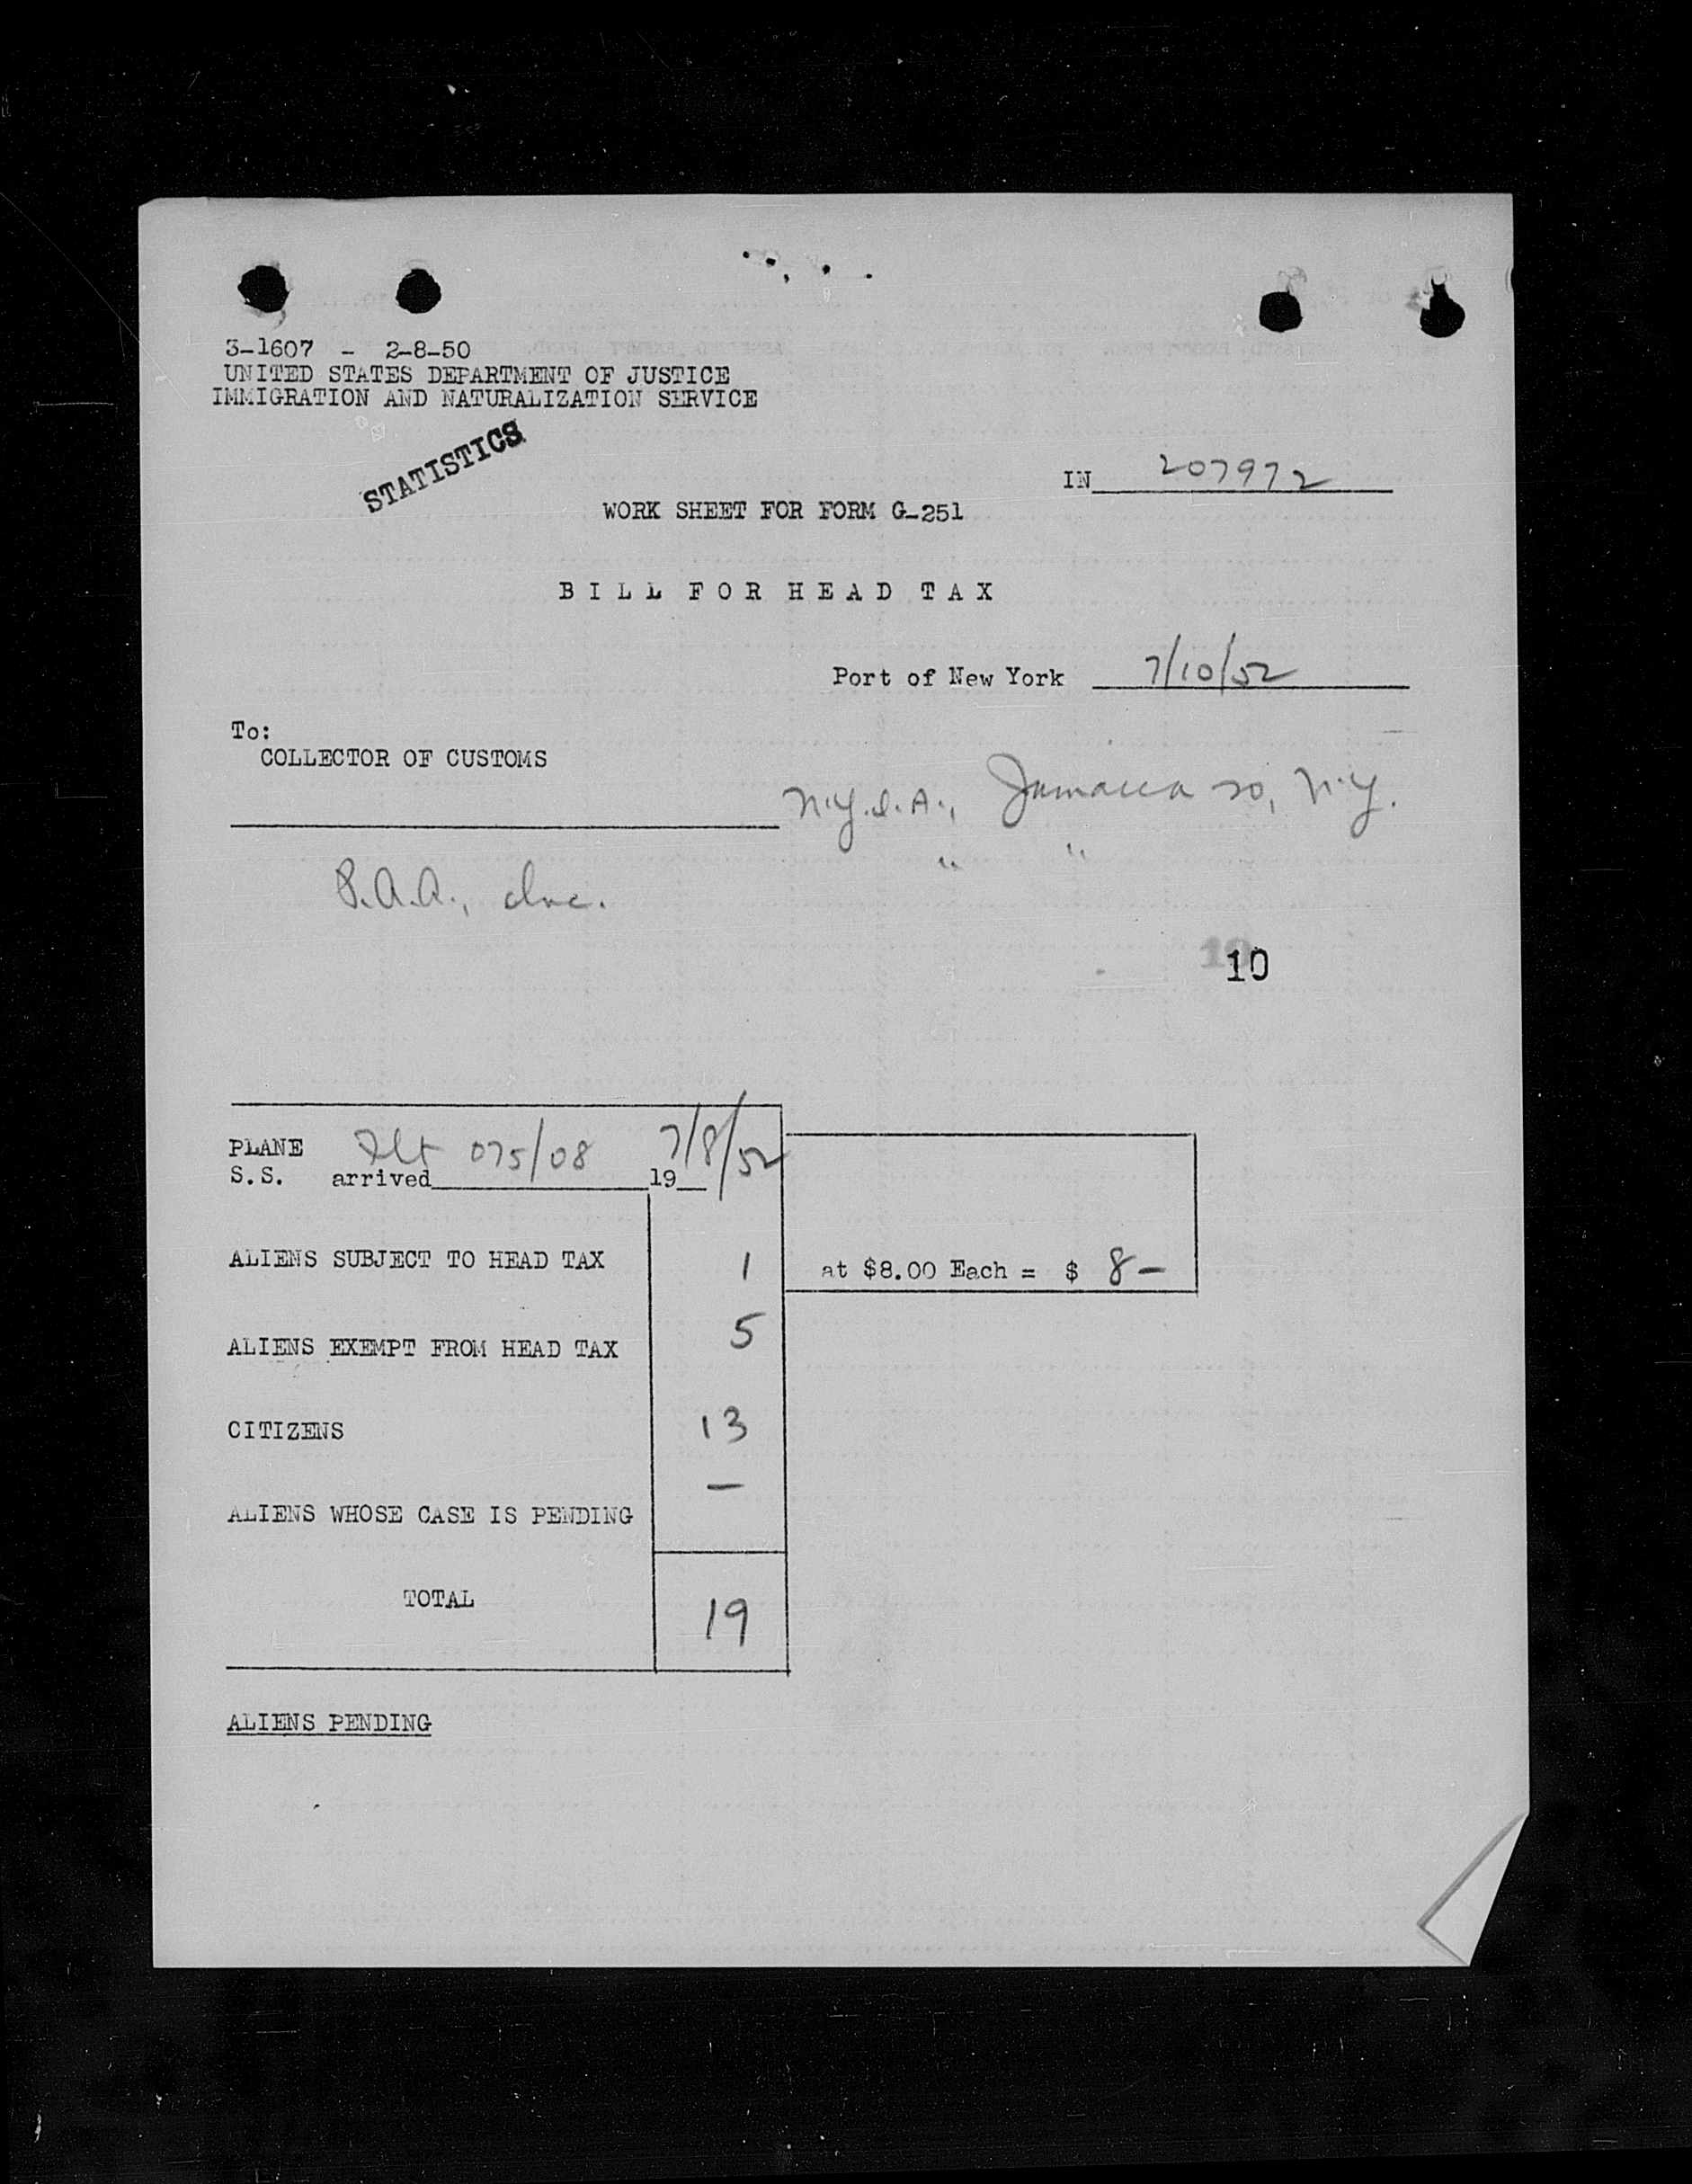 3-1607 - 2-8-50
UNITED STATES DEPARTMENT OF JUSTICE
IMMIGRATION AND NATURALIZATION SERVICE
STATISTICS
IN 207972
WORK SHEET FOR FORM G-251
BILL FOR HEAD TAX
Port of New York 7/10/52
To:
COLLECTOR OF CUSTOMS
N.Y.I.A., Jamaica 20, N.Y.
" "
P.A.A., Inc.
10
PLANE Flt 075/08 7/8/52
S.S. arrived 19
ALIENS SUBJECT TO HEAD TAX 1 at $8.00 Each = $ 8-
ALIENS EXEMPT FROM HEAD TAX 5
CITIZENS 13
ALIENS WHOSE CASE IS PENDING —
TOTAL 19
ALIENS PENDING